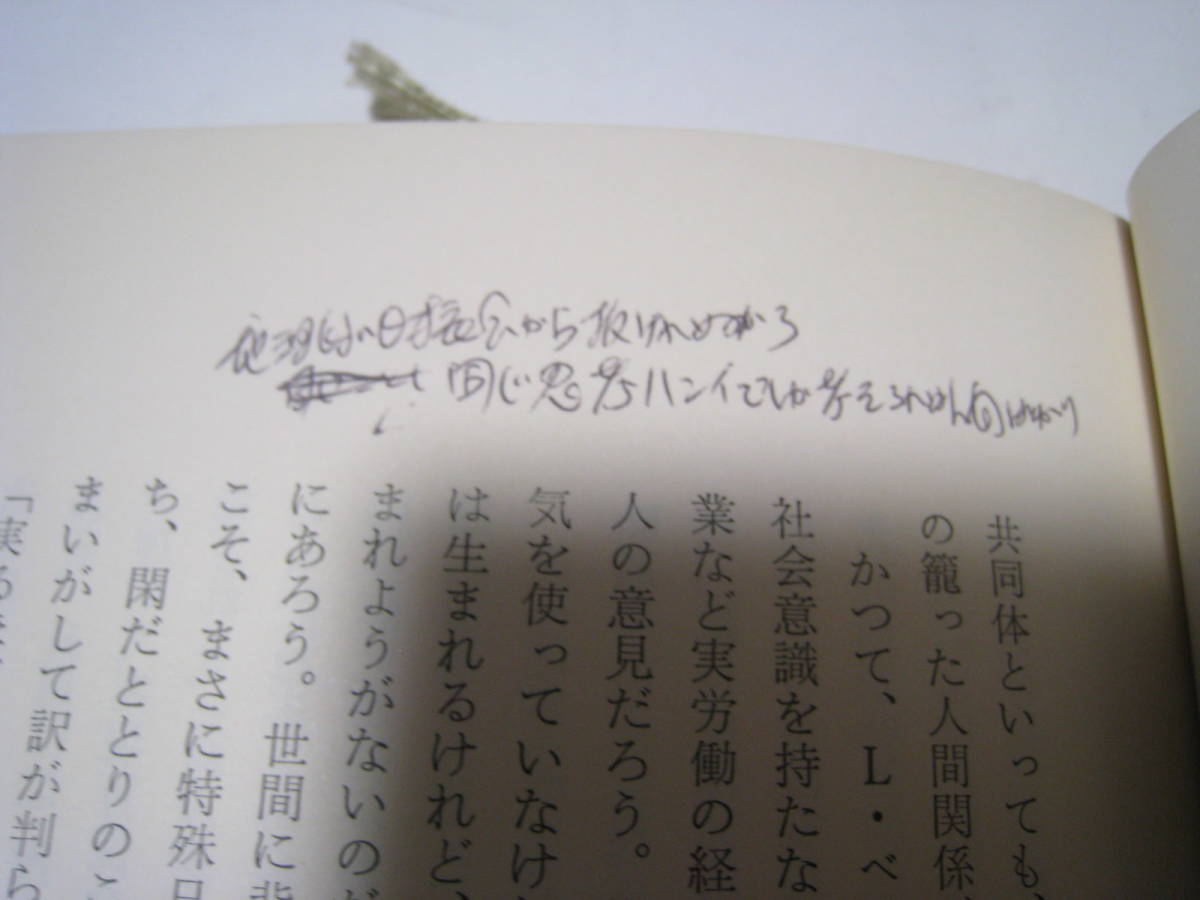 から抜けれぬから
同じ思考ハンイでしか考えられない
共同体といっても、
の籠った人間関係
かつて、L・ベ
社会意識を持たな
業など実労働の経
人の意見だろう。
気を使っていなけ
は生まれるけれど、
まれようがないのだ
にあろう。世間に背
こそ、まさに特殊日
ち、閑だととりのこ
まいがして訳が判ら
「実る